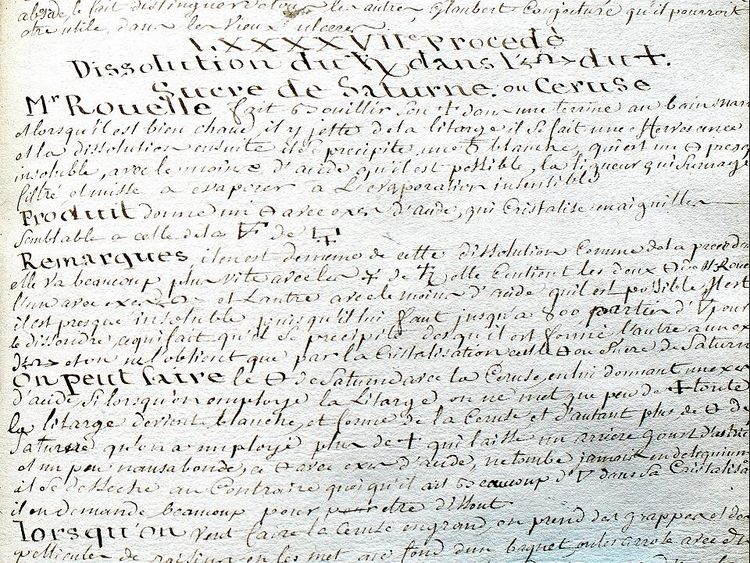 acide, le fait distinguer de tous les autres, Glaubert Conjecture qu'il pourroit
etre utile, dans les vieux ulceres
LXXXXVIIe procedé
Dissolution du ♄ dans l' du +.
Sucre de Saturne. ou Ceruse
Mr Rouelle fait bouillir son + dans une terrine au bain mar
et lorsqu'il est bien chaud, il y jette de la litarge il se fait une effervescence
et la dissolution ensuite il se precipite une blanche, qui est un presq
insoluble, avec le moins d'acide qu'il est possible, la liqueur qui surnage
filtré et mise a evaporer à L'evaporation insensible
Produit donne un avec exces d'acide, qui Cristalise en aiguilles
Semblable a celle de la de
Remarques il en est de meme de cette dissolution Comme de la precedente
elle va beaucoup plus vite avec les de elle Contient les deux de Mr Roue
l'un avec exces et L'autre avec le moins d'acide qu'il est possible
il est presque insoluble puisqu'il lui faut jusqu'a 800 parties d'▽ pour
le dissoudre, ce qui fait qu'il se precipite des qu'il est formé, l'autre a un ex
et on ne l'obtient que par la Cristalisation ou Sucre de Saturn
On peut faire le de Saturne avec la Ceruse, en lui donnant un exces
d'acide, Si lorsqu'on employe la Litarge, on ne met que peu de + toute
la litarge devient blanche, et forme de la Ceruse et d'autant plus de de
Saturne qu'on a employé plus de + qui laisse un arriere gout d'
et un peu nausabonde, ce avec exces d'acide, ne tombe jamais en deliquium
il se desseche au Contraire quoiqu'il ait beaucoup d'▽ dans sa Cristalisa
il en demande beaucoup pour etre dissout
Lorsqu'on veut faire la Ceruse en grand, on prend des grappes et des
pellicules de raisins on les met au fond d'un baquet, on les arrose avec